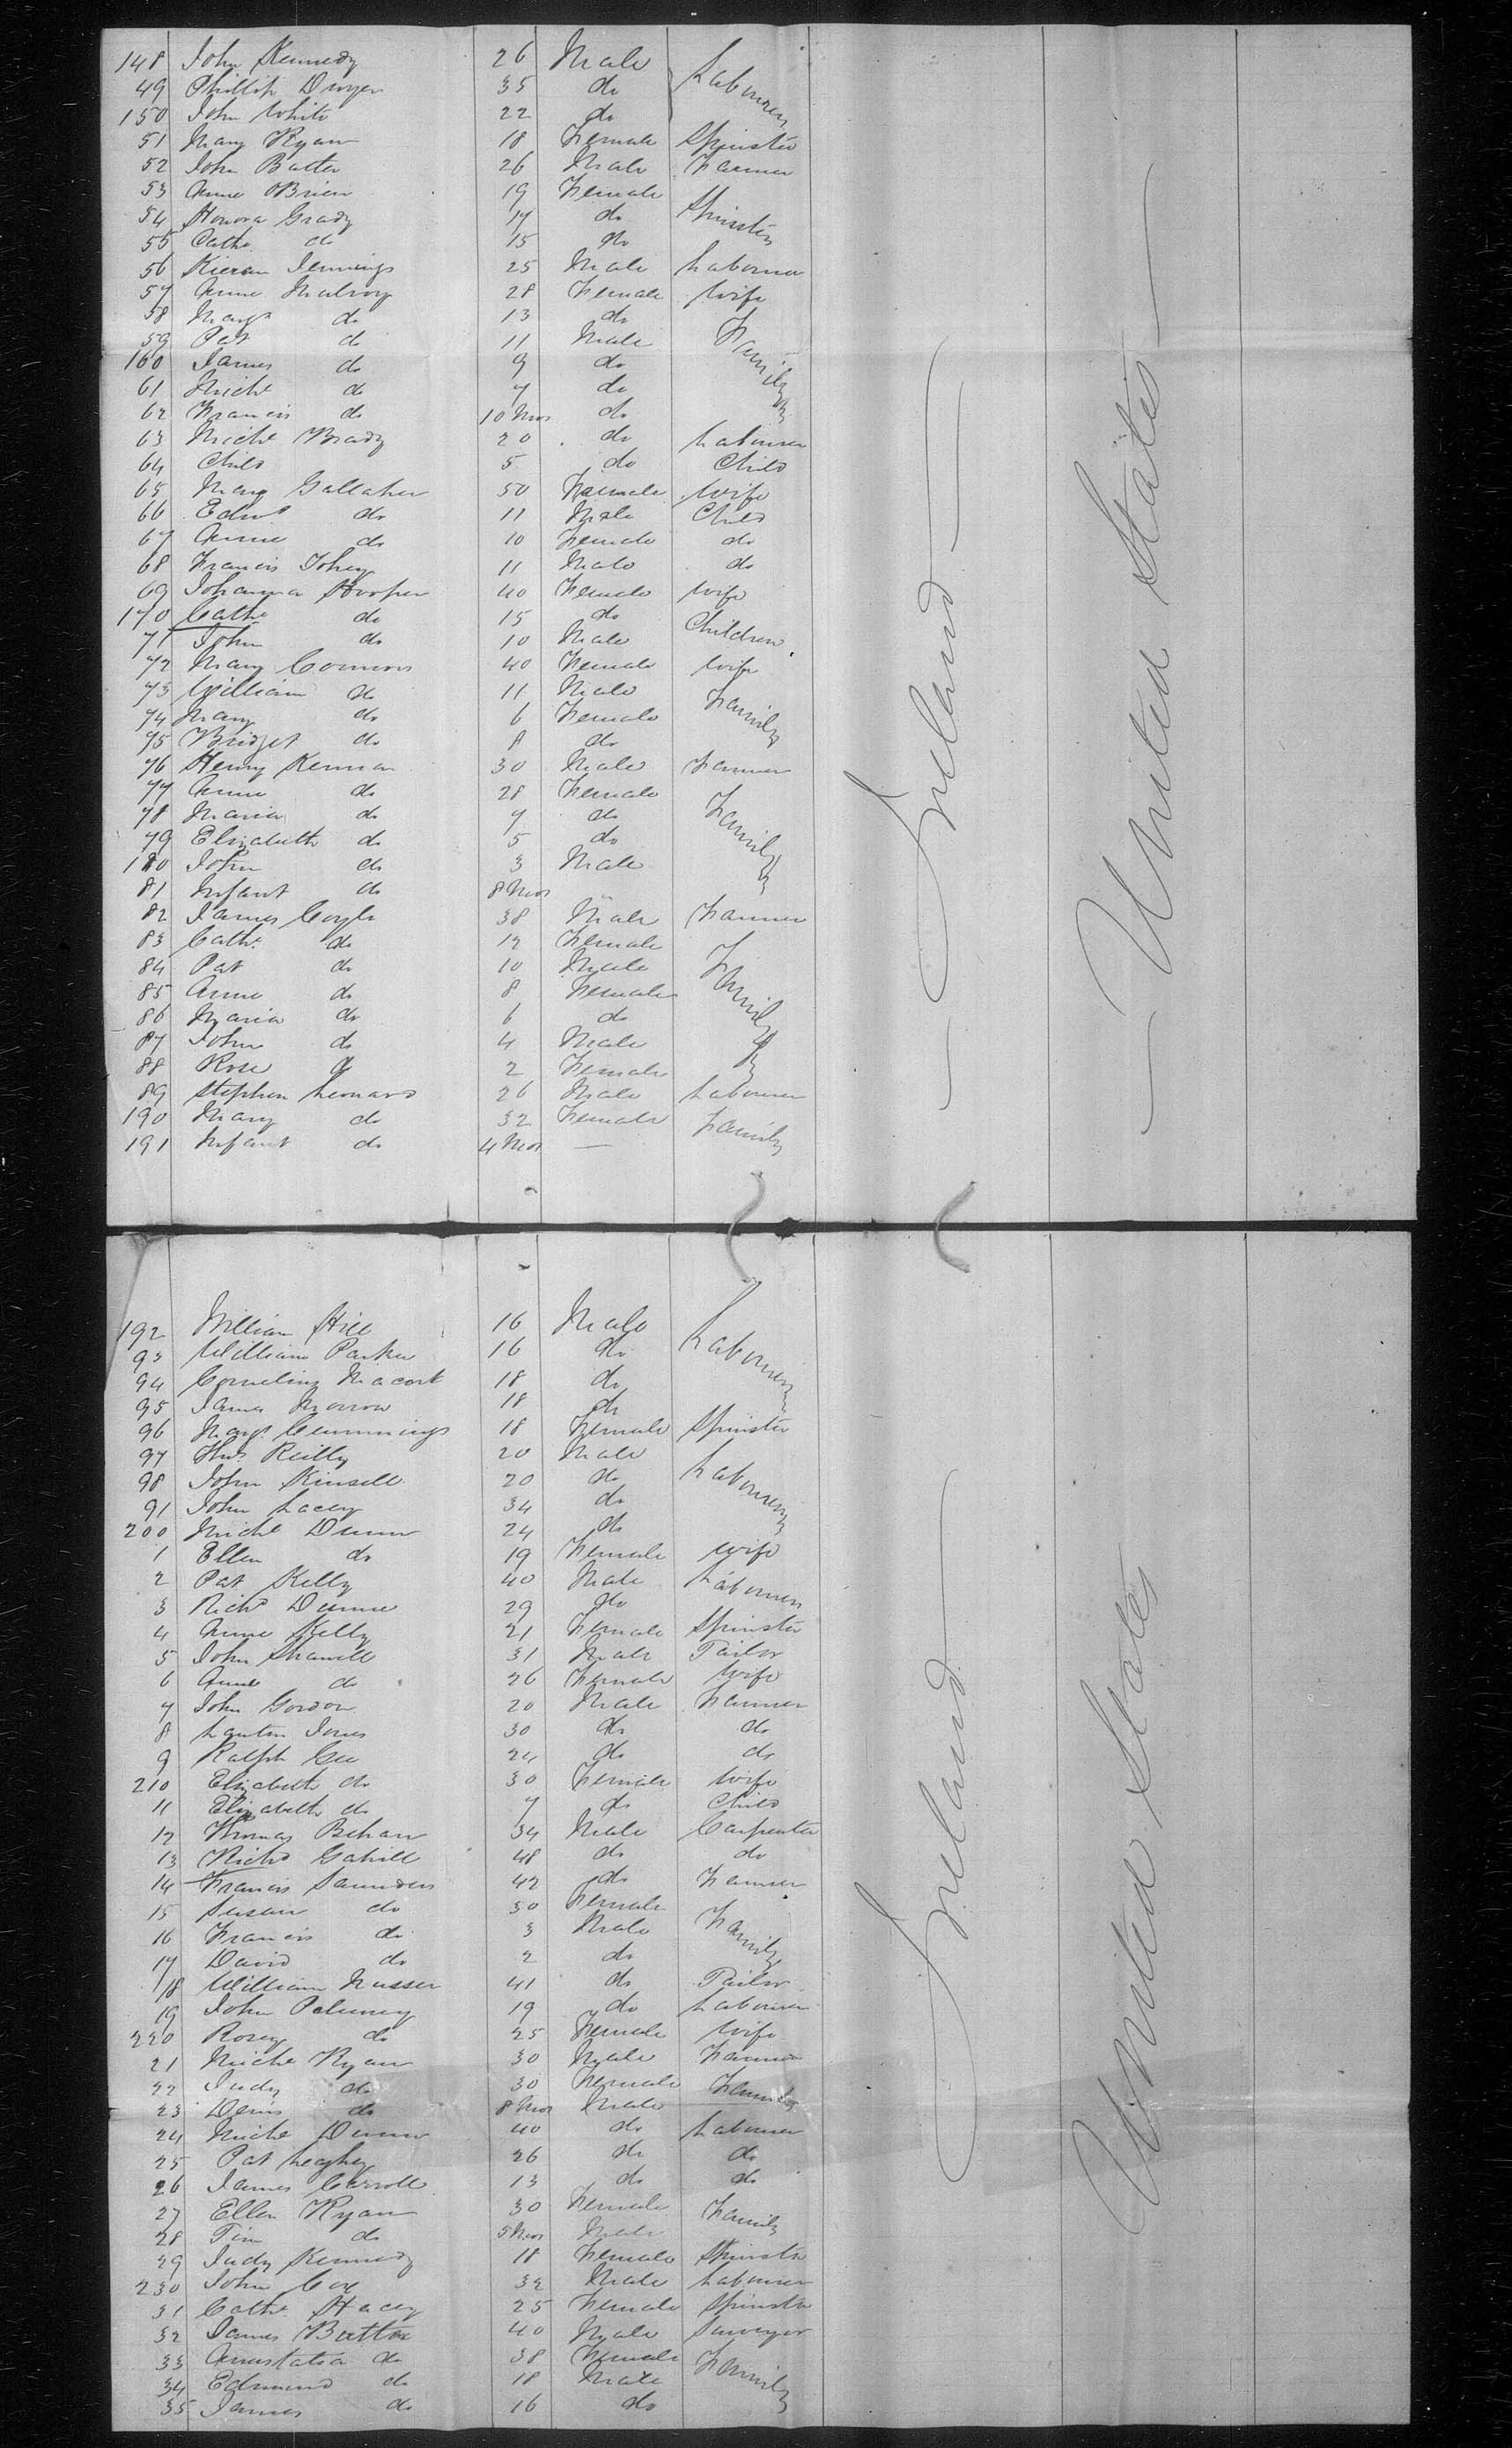 148 John Kennedy 26 Male Labourers
49 Phillip Dwyer 35 do
150 John White 22 do
51 Mary Ryan 18 Female Spinster
52 John Batter 26 Male Farmer
53 Anne OBrien 19 Female Spinsters
54 Honora Grady 17 do
55 Cathe do 15 do
56 Kieran Jennings 25 Male Labourer
57 Anne Mulroy 28 Female Wife
58 Margt do 13 do Family
59 Pat do 11 Male
160 James do 9 do
61 Michl do 7 do
62 Francis do 10 Mos do
63 Michl Brady 20 do Labourer
64 Child 5 do Child
65 Mary Gallaher 50 Female Wife
66 Edwd do 11 Male Child
67 Anne do 10 Female do
68 Francis Tohey 11 Male do
69 Johanna Hooper 40 Female Wife
170 Cathe do 15 do Children
71 John do 10 Male
72 Mary Connors 40 Female Wife
73 William do 11 Male Family
74 Mary do 6 Female
75 Bridget do 8 do
76 Henry Kernan 30 Male Farmer
77 Anne do 28 Female Family
78 Maria do 7 do
79 Elizabeth do 5 do
180 John do 3 Male
81 Infant do 8 Mos
82 James Coyle 38 Male Farmer
83 Cathe do 12 Female Family
84 Pat do 10 Male
85 Anne do 8 Female
86 Maria do 6 do
87 John do 4 Male
88 Rose do 2 Female
89 Stephen Leonard 26 Male Labourer
190 Mary do 32 Female Family
191 Infant do 4 Mos —
Ireland
United States
192 William Hill 16 Male Labourers
93 William Parker 16 do
94 Cornelius 18 do
95 James Morrow 18 do
96 Margt Cummings 18 Female Spinster
97 Thos Reilly 20 Male Labourers
98 John Kinsell 20 do
91 John Lacey 34 do
200 Michl Dunn 24 do
1 Ellen do 19 Female Wife
2 Pat Kelly 40 Male Labourers
3 Richd Dunne 29 do
4 Anne Kelly 21 Female Spinster
5 John 31 Male Tailor
6 Anne do 26 Female Wife
7 John Gordon 20 Male Farmer
8 Jones 30 do do
9 Ralph Gee 24 do do
210 Elizabeth do 30 Female Wife
11 Elizabeth do 7 do Child
12 Thomas Behan 34 Male Carpenter
13 Richd Gahill 48 do do
14 Francis Saunders 42 do Farmer
15 Susan do 30 Female Family
16 Francis do 3 Male
17 David do 2 do
18 William Musser 41 do Tailor
19 John 19 do Labourer
220 Rosey do 25 Female Wife
21 Michl Ryan 30 Male Farmer
22 Judy do 30 Female Family
23 Denis do 8 Mos Male
24 Michl Dunn 40 do Labourer
25 Pat Leahey 26 do do
26 James Carroll 13 do do
27 Ellen Ryan 30 Female Family
28 Tim do 5 Mos Male
29 Judy Kennedy 18 Female Spinster
230 John Cox 32 Male Labourer
31 Cathe Stacey 25 Female Spinster
32 James Buttler 40 Male Surveyor
33 Annstatia do 38 Female Family
34 Edmund do 18 Male
35 James do 16 do
Ireland
United States